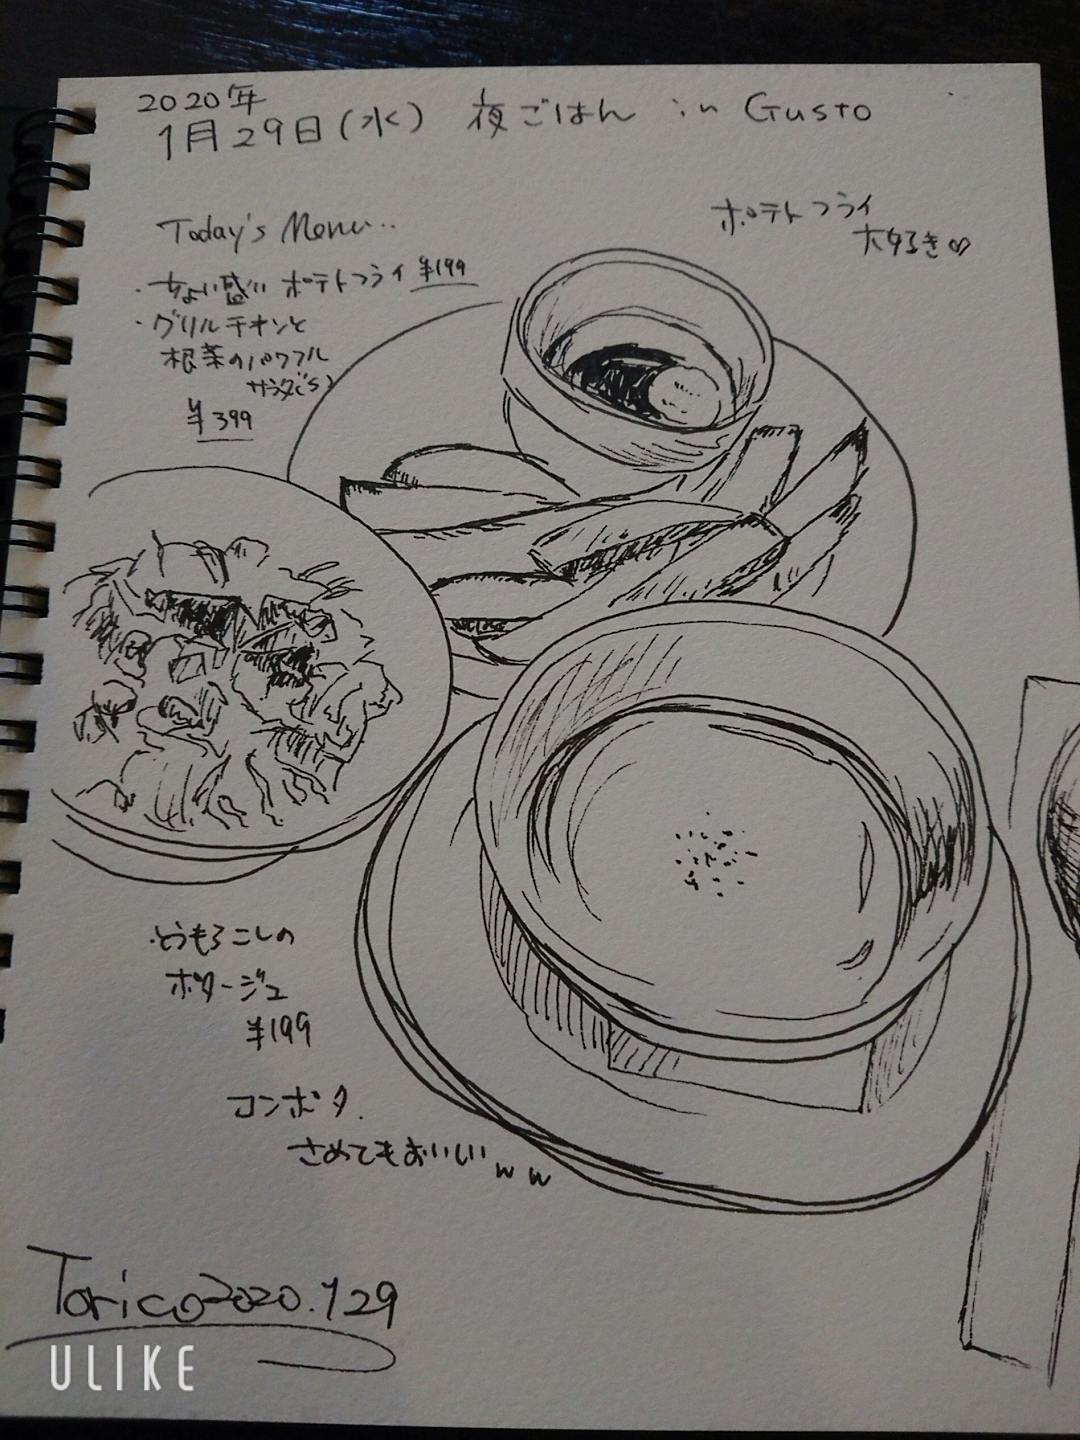 2020年
1月29日(水) 夜ごはん in Gusto
Today's Menu...
・ちょい盛りポテトフライ ¥199
・グリルチキンと
根菜のパワフル
サラダ(S)
¥399
ポテトフライ
大好き♡
・とうもろこしの
ポタージュ
¥199
コンポタ.
さめてもおいしいww
Torico2020.1.29
ULIKE